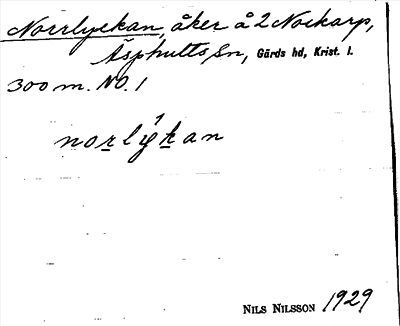 Norrlyckan, åker å 2 Nockarp,
Äsphults Sn, Gärds hd, Krist. l.
300 m. NO. 1
norlykan
NILS NILSSON 1929